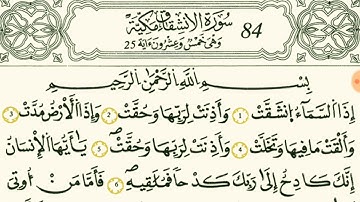 سُورَةُ الِانْشِقَاقِ مَكِّيَّةٌ 84
وَهِيَ خَمْسٌ وَعِشْرُونَ ءَايَة 25
بِسْمِ اللَّهِ الرَّحْمَٰنِ الرَّحِيمِ
إِذَا السَّمَآءُ انْشَقَّتْ 1 وَأَذِنَتْ لِرَبِّهَا وَحُقَّتْ 2 وَإِذَا الْأَرْضُ مُدَّتْ 3
وَأَلْقَتْ مَا فِيهَا وَتَخَلَّتْ 4 وَأَذِنَتْ لِرَبِّهَا وَحُقَّتْ 5 يَٰٓأَيُّهَا الْإِنْسَانُ
إِنَّكَ كَادِحٌ إِلَىٰ رَبِّكَ كَدْحًا فَمُلَٰقِيهِ 6 فَأَمَّا مَنْ أُوتِيَ